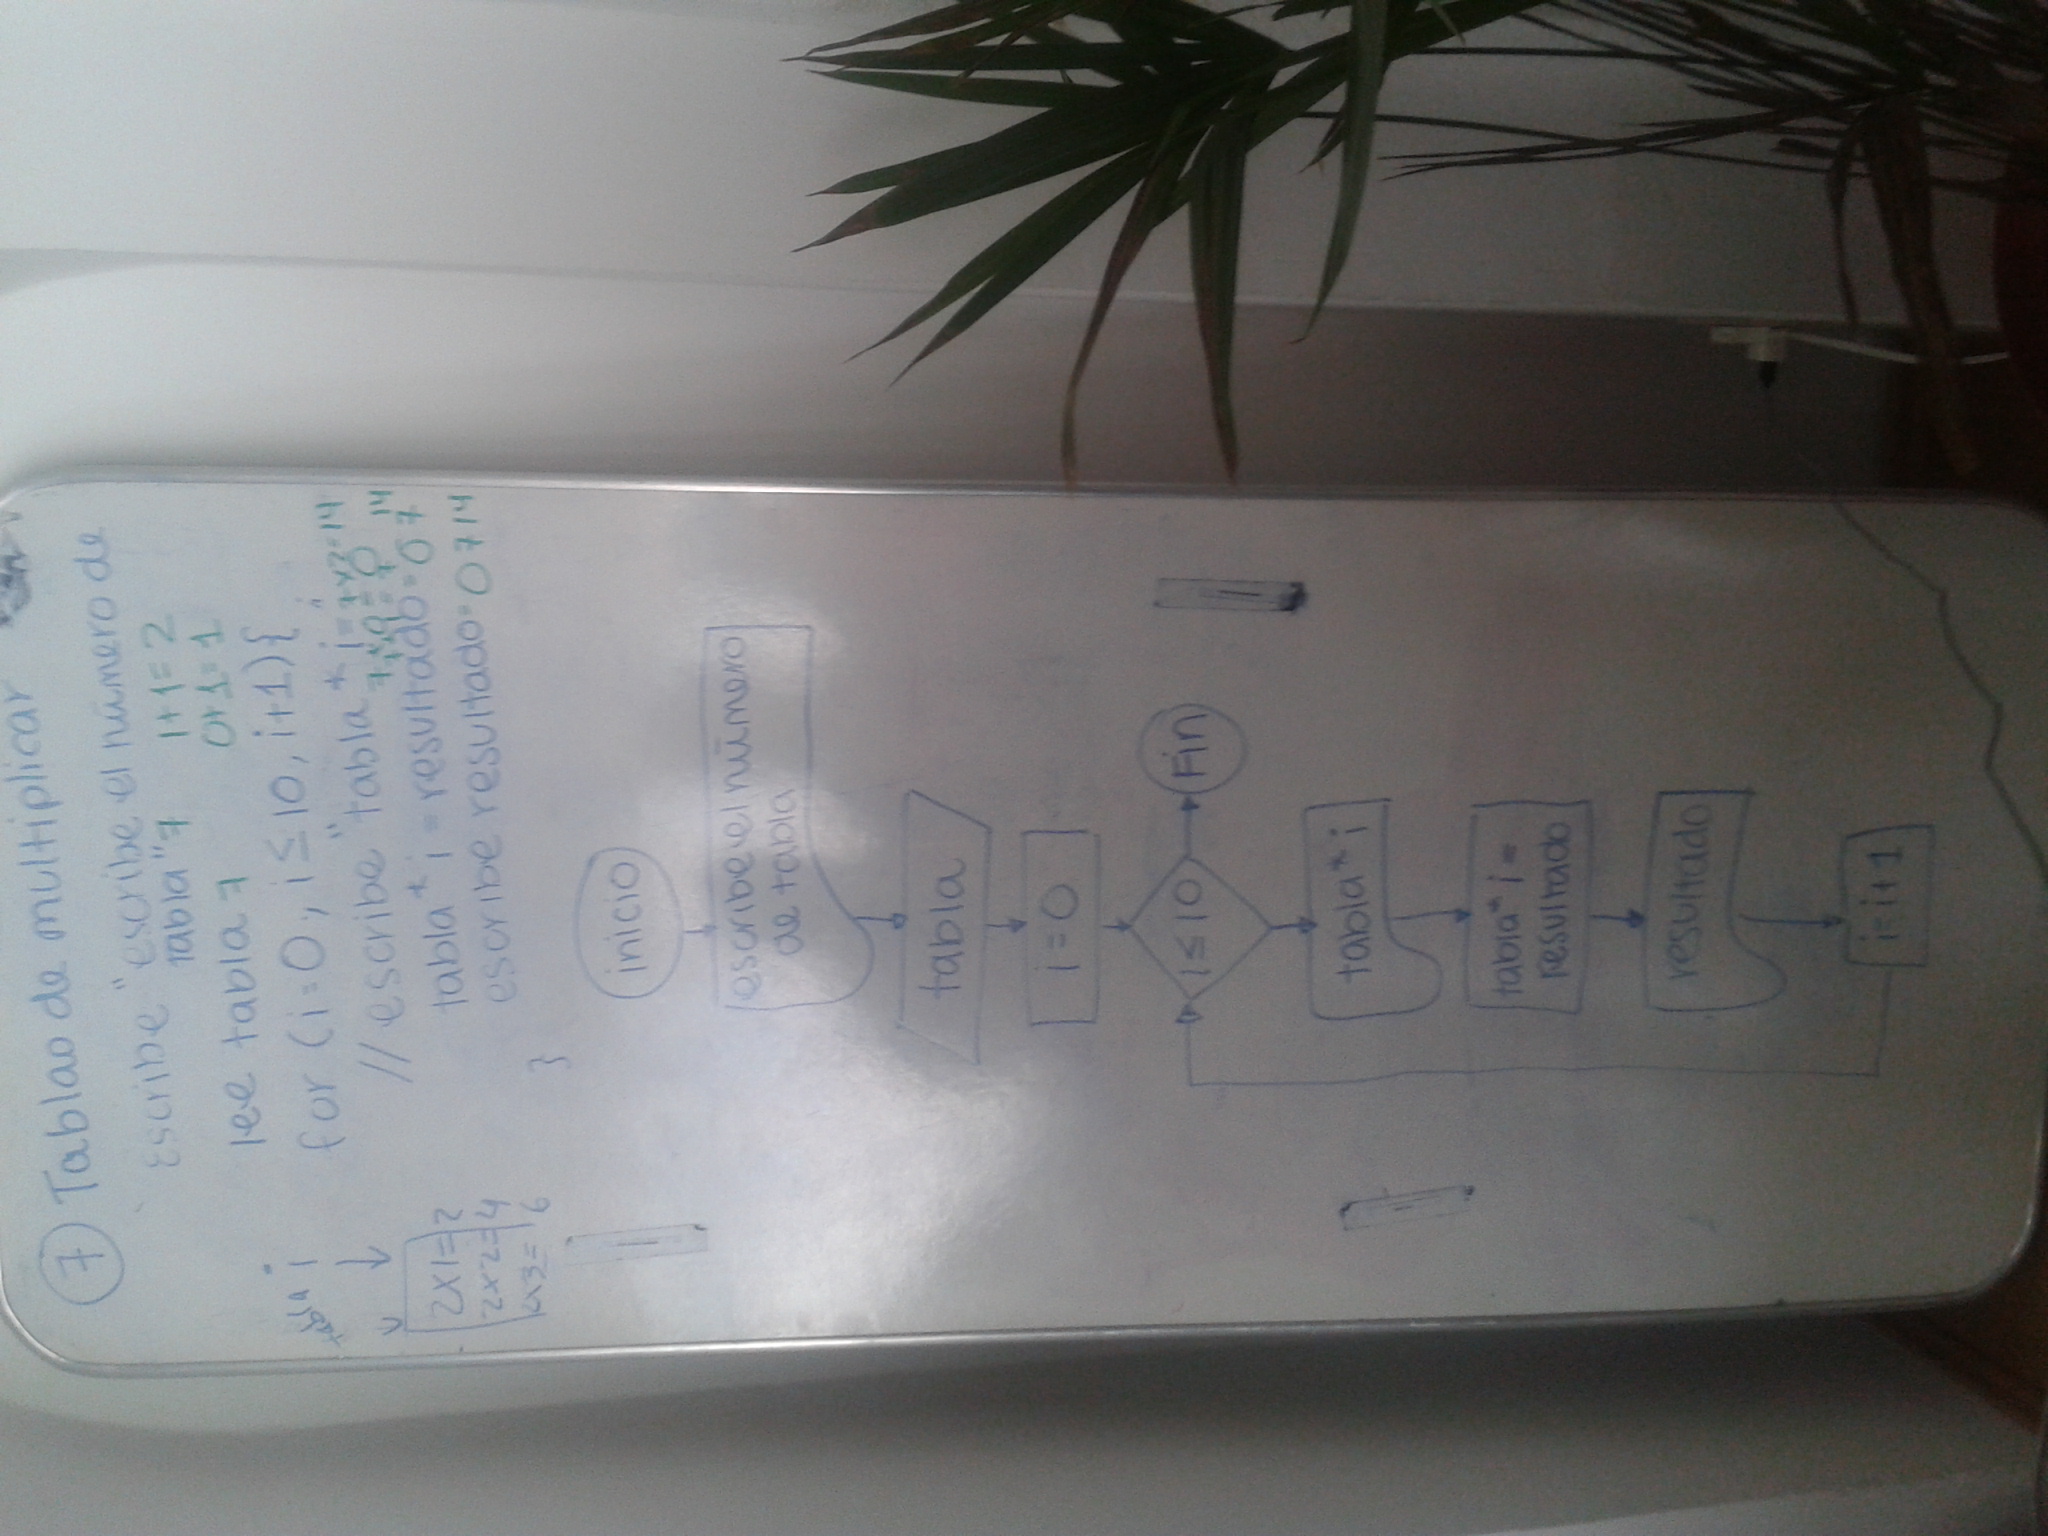 7 Tablao de multiplicar
Escribe "escribe el número de
tabla" 7 1+1=2
lee tabla 7 0+1=1
for (i=0, i≤10, i+1){
// escribe "tabla * i= 7x2=14
tabla * i = resultado= 0 7 14
escribe resultado= 0 7 14
}
tabla i
2x1=2
2x2=4
x3= 6
inicio
escribe el número
de tabla
tabla
i=0
i≤10 Fin
tabla* i
tabla* i =
resultado
resultado
i=i+1